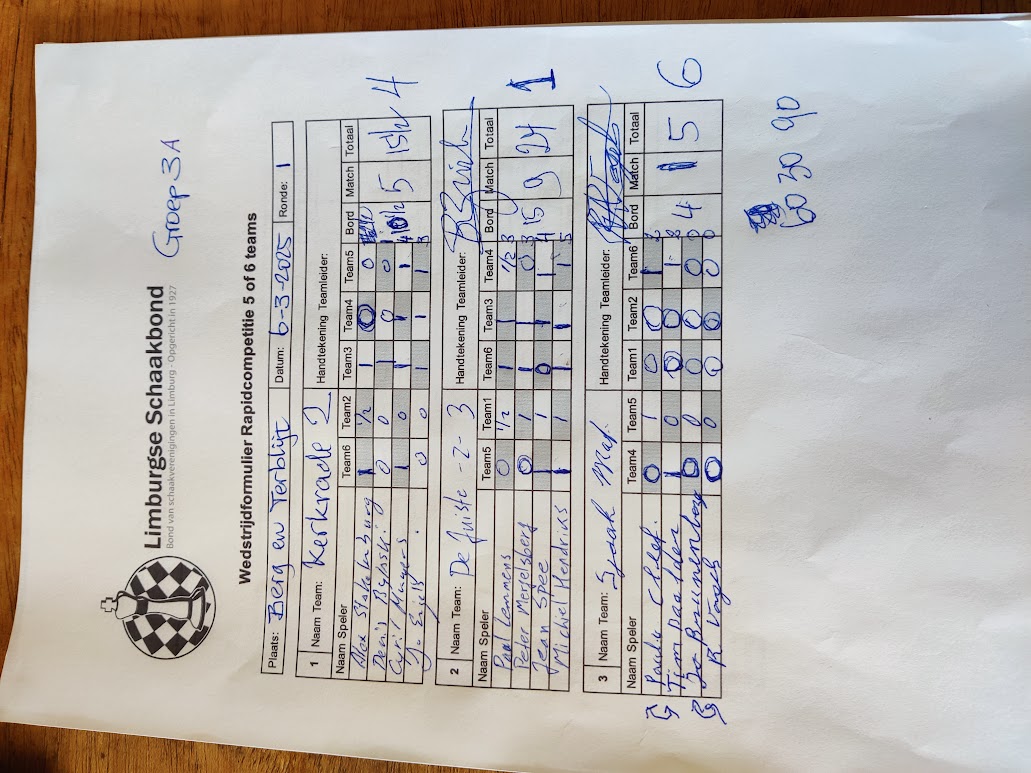 Limburgse Schaakbond
Bond van schaakverenigingen in Limburg - Opgericht in 1927
Groep 3A
Wedstrijdformulier Rapidcompetitie 5 of 6 teams
Plaats: Berg en Terblijt Datum: 6-3-2025 Ronde: 1
1 Naam Team: Kerkrade 2 Handtekening Teamleider:
Naam Speler Team6 Team2 Team3 Team4 Team5 Bord Match Totaal
Alex 1 1/2 1 0 0
Denis 0 0 1 0 0 1
Cyril 1 0 1 1 1 4
0 0 1 1 1 3
10 1/2 5 15 1/2 4
2 Naam Team: De Juiste -Z- 3 Handtekening Teamleider:
Naam Speler Team5 Team1 Team6 Team3 Team4 Bord Match Totaal
Paul Lemmens 0 1/2 1 1 1/2 3
Peter Mergelsberg 0 1 1 1 0 3
Jean Spee 1 1 0 1 1 4
Michiel Hendriks 1 1 1 1 1 5
15 9 24 1
3 Naam Team: Sjaak Mat. Handtekening Teamleider:
Naam Speler Team4 Team5 Team1 Team2 Team6 Bord Match Totaal
0 1 0 0 1 2
Tim 1 0 0 0 1 2
0 0 0 0 0 0
R 0 0 0 0 0 0
4 1 5 6
60 30 90